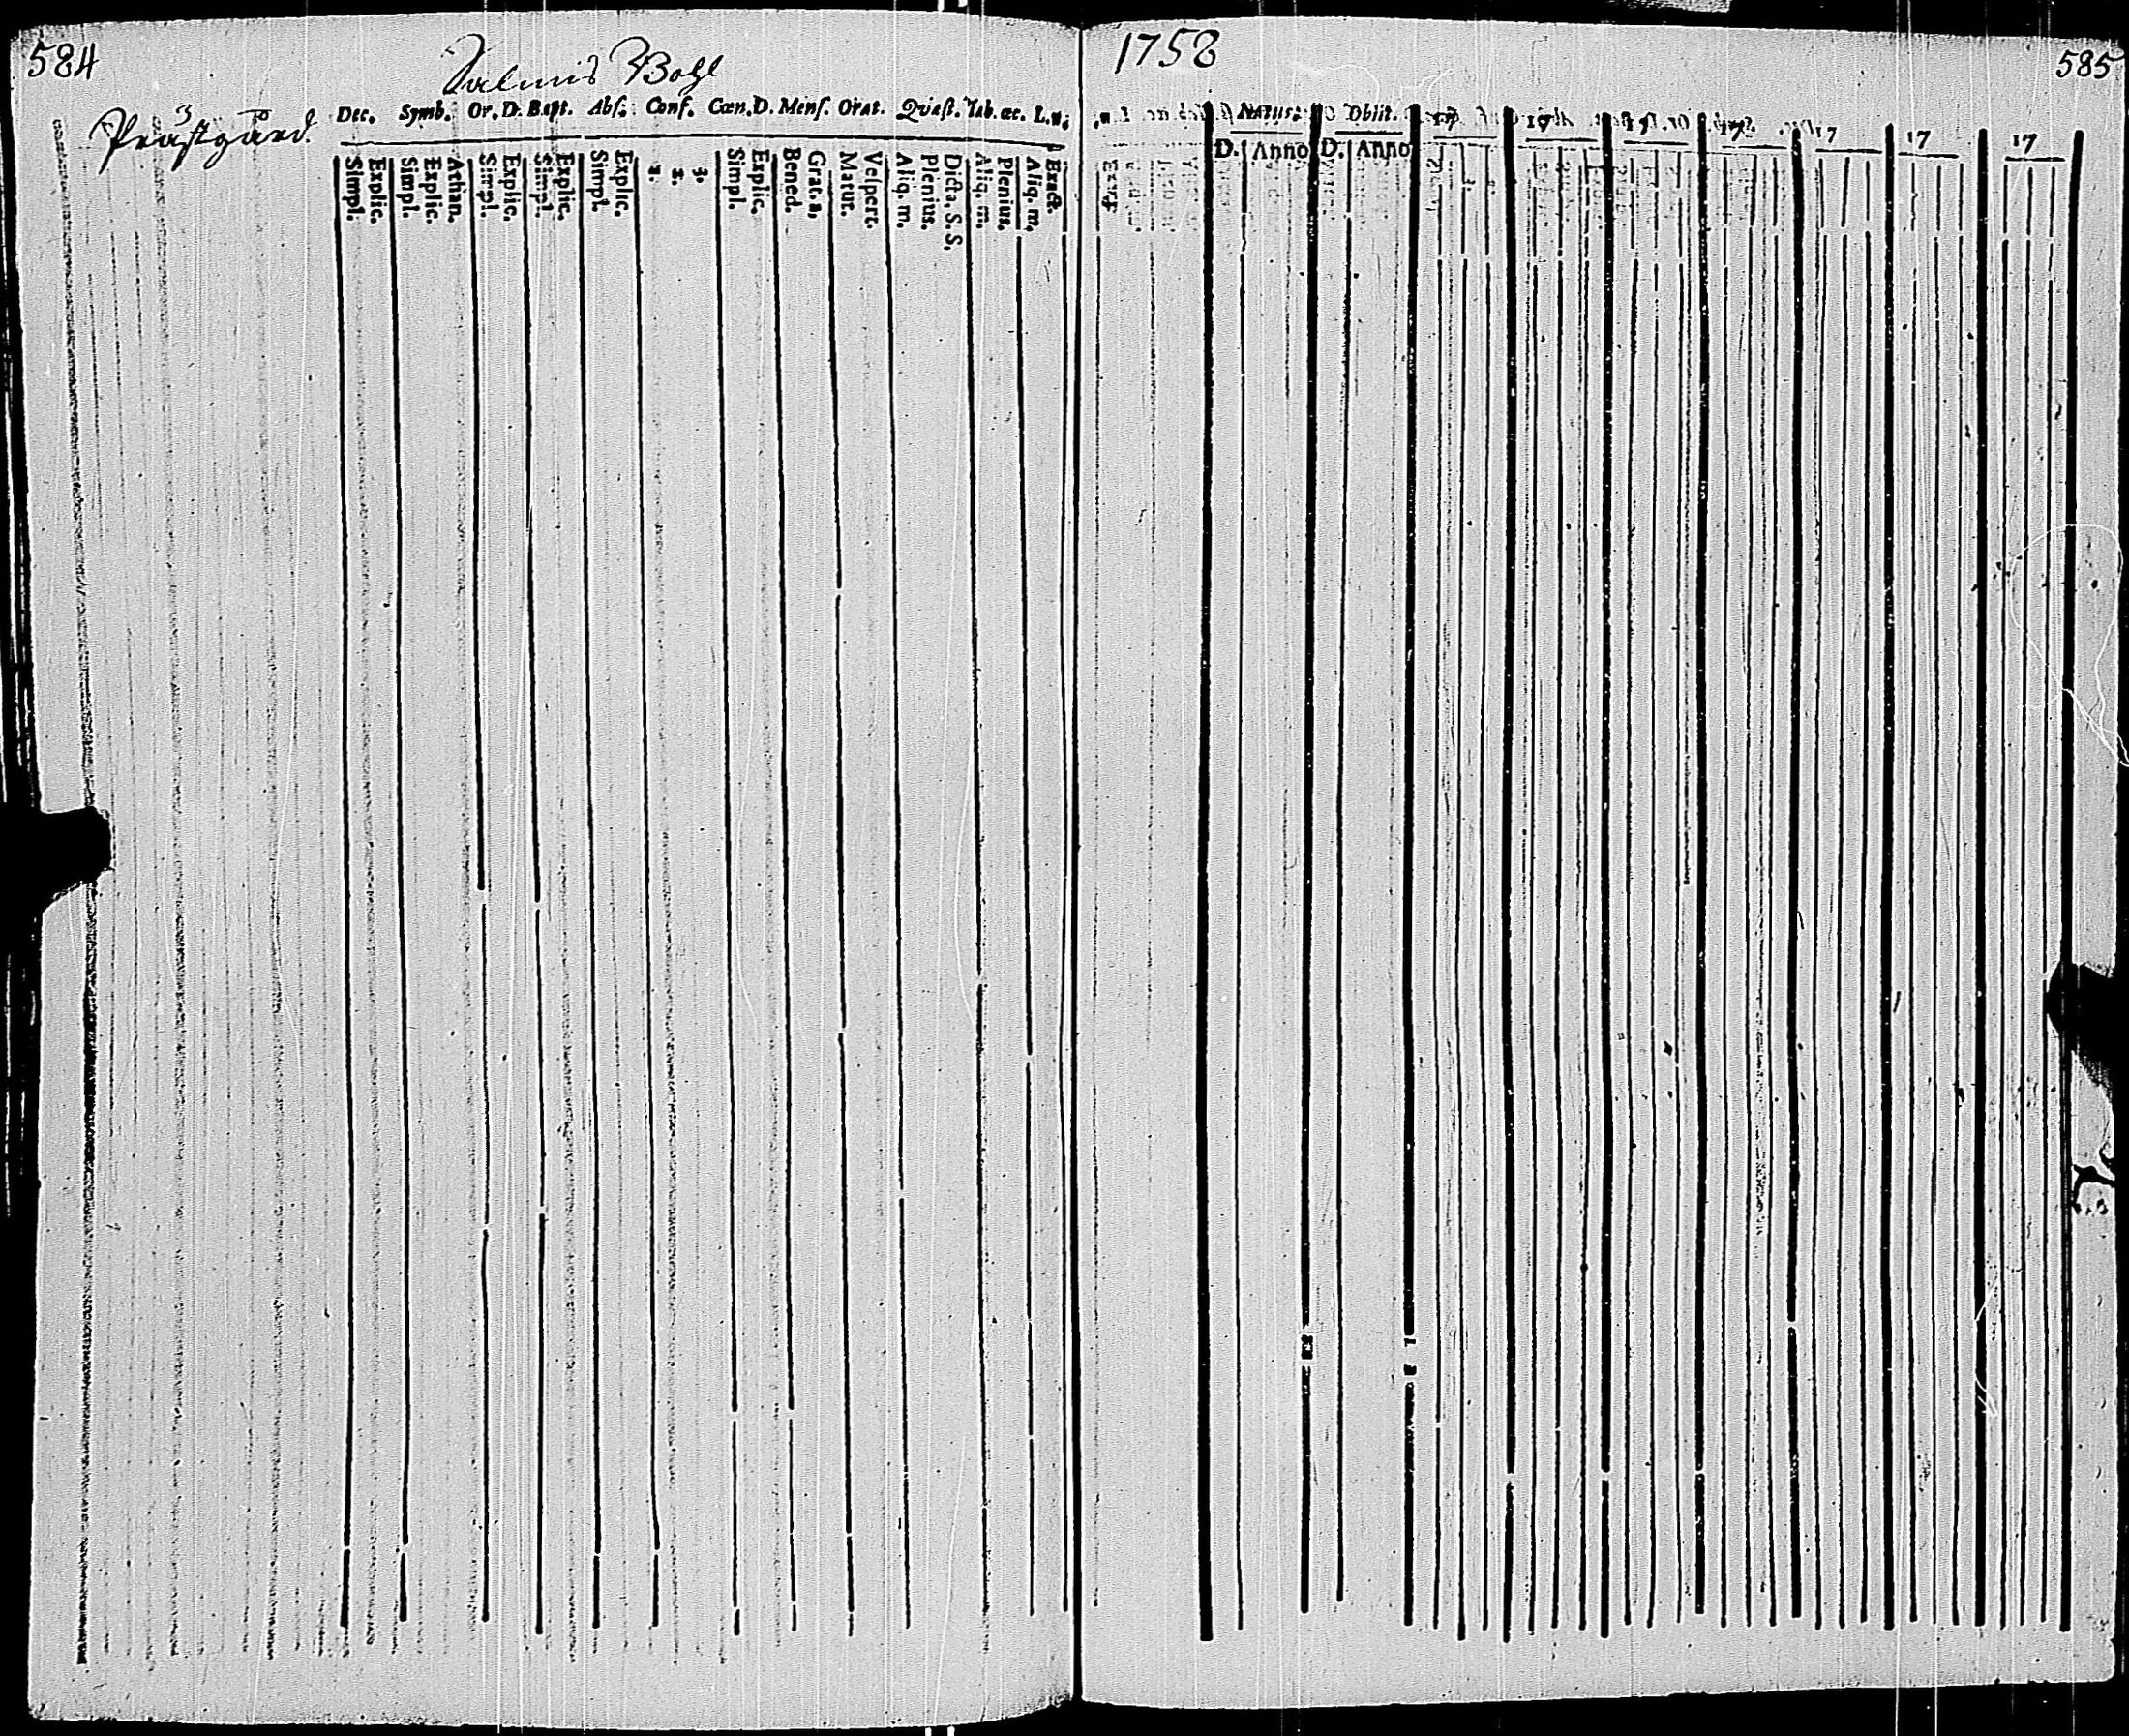 584
Salmis Bohl
Prästgård.
Dec. Symb. Or. D. Bapt. Abs. Conf. Cœn. D. Mens. Orat. Qvæst. Tab. œc. L. n.
Simpl. Explic. Simpl. Explic. Athan. Simpl. Explic. Simpl. Explic. Simpl. Explic. 1. 2. 3. Simpl. Explic. Bened. Grat. a. Matut. Vespert. Aliq. m. Plenius. Dicta, S. S. Aliq. m. Plenius. Aliq. m. Exact.
1758
585
Natus. Obiit. 17 17 17 17 17 17 17
D. Anno D. Anno